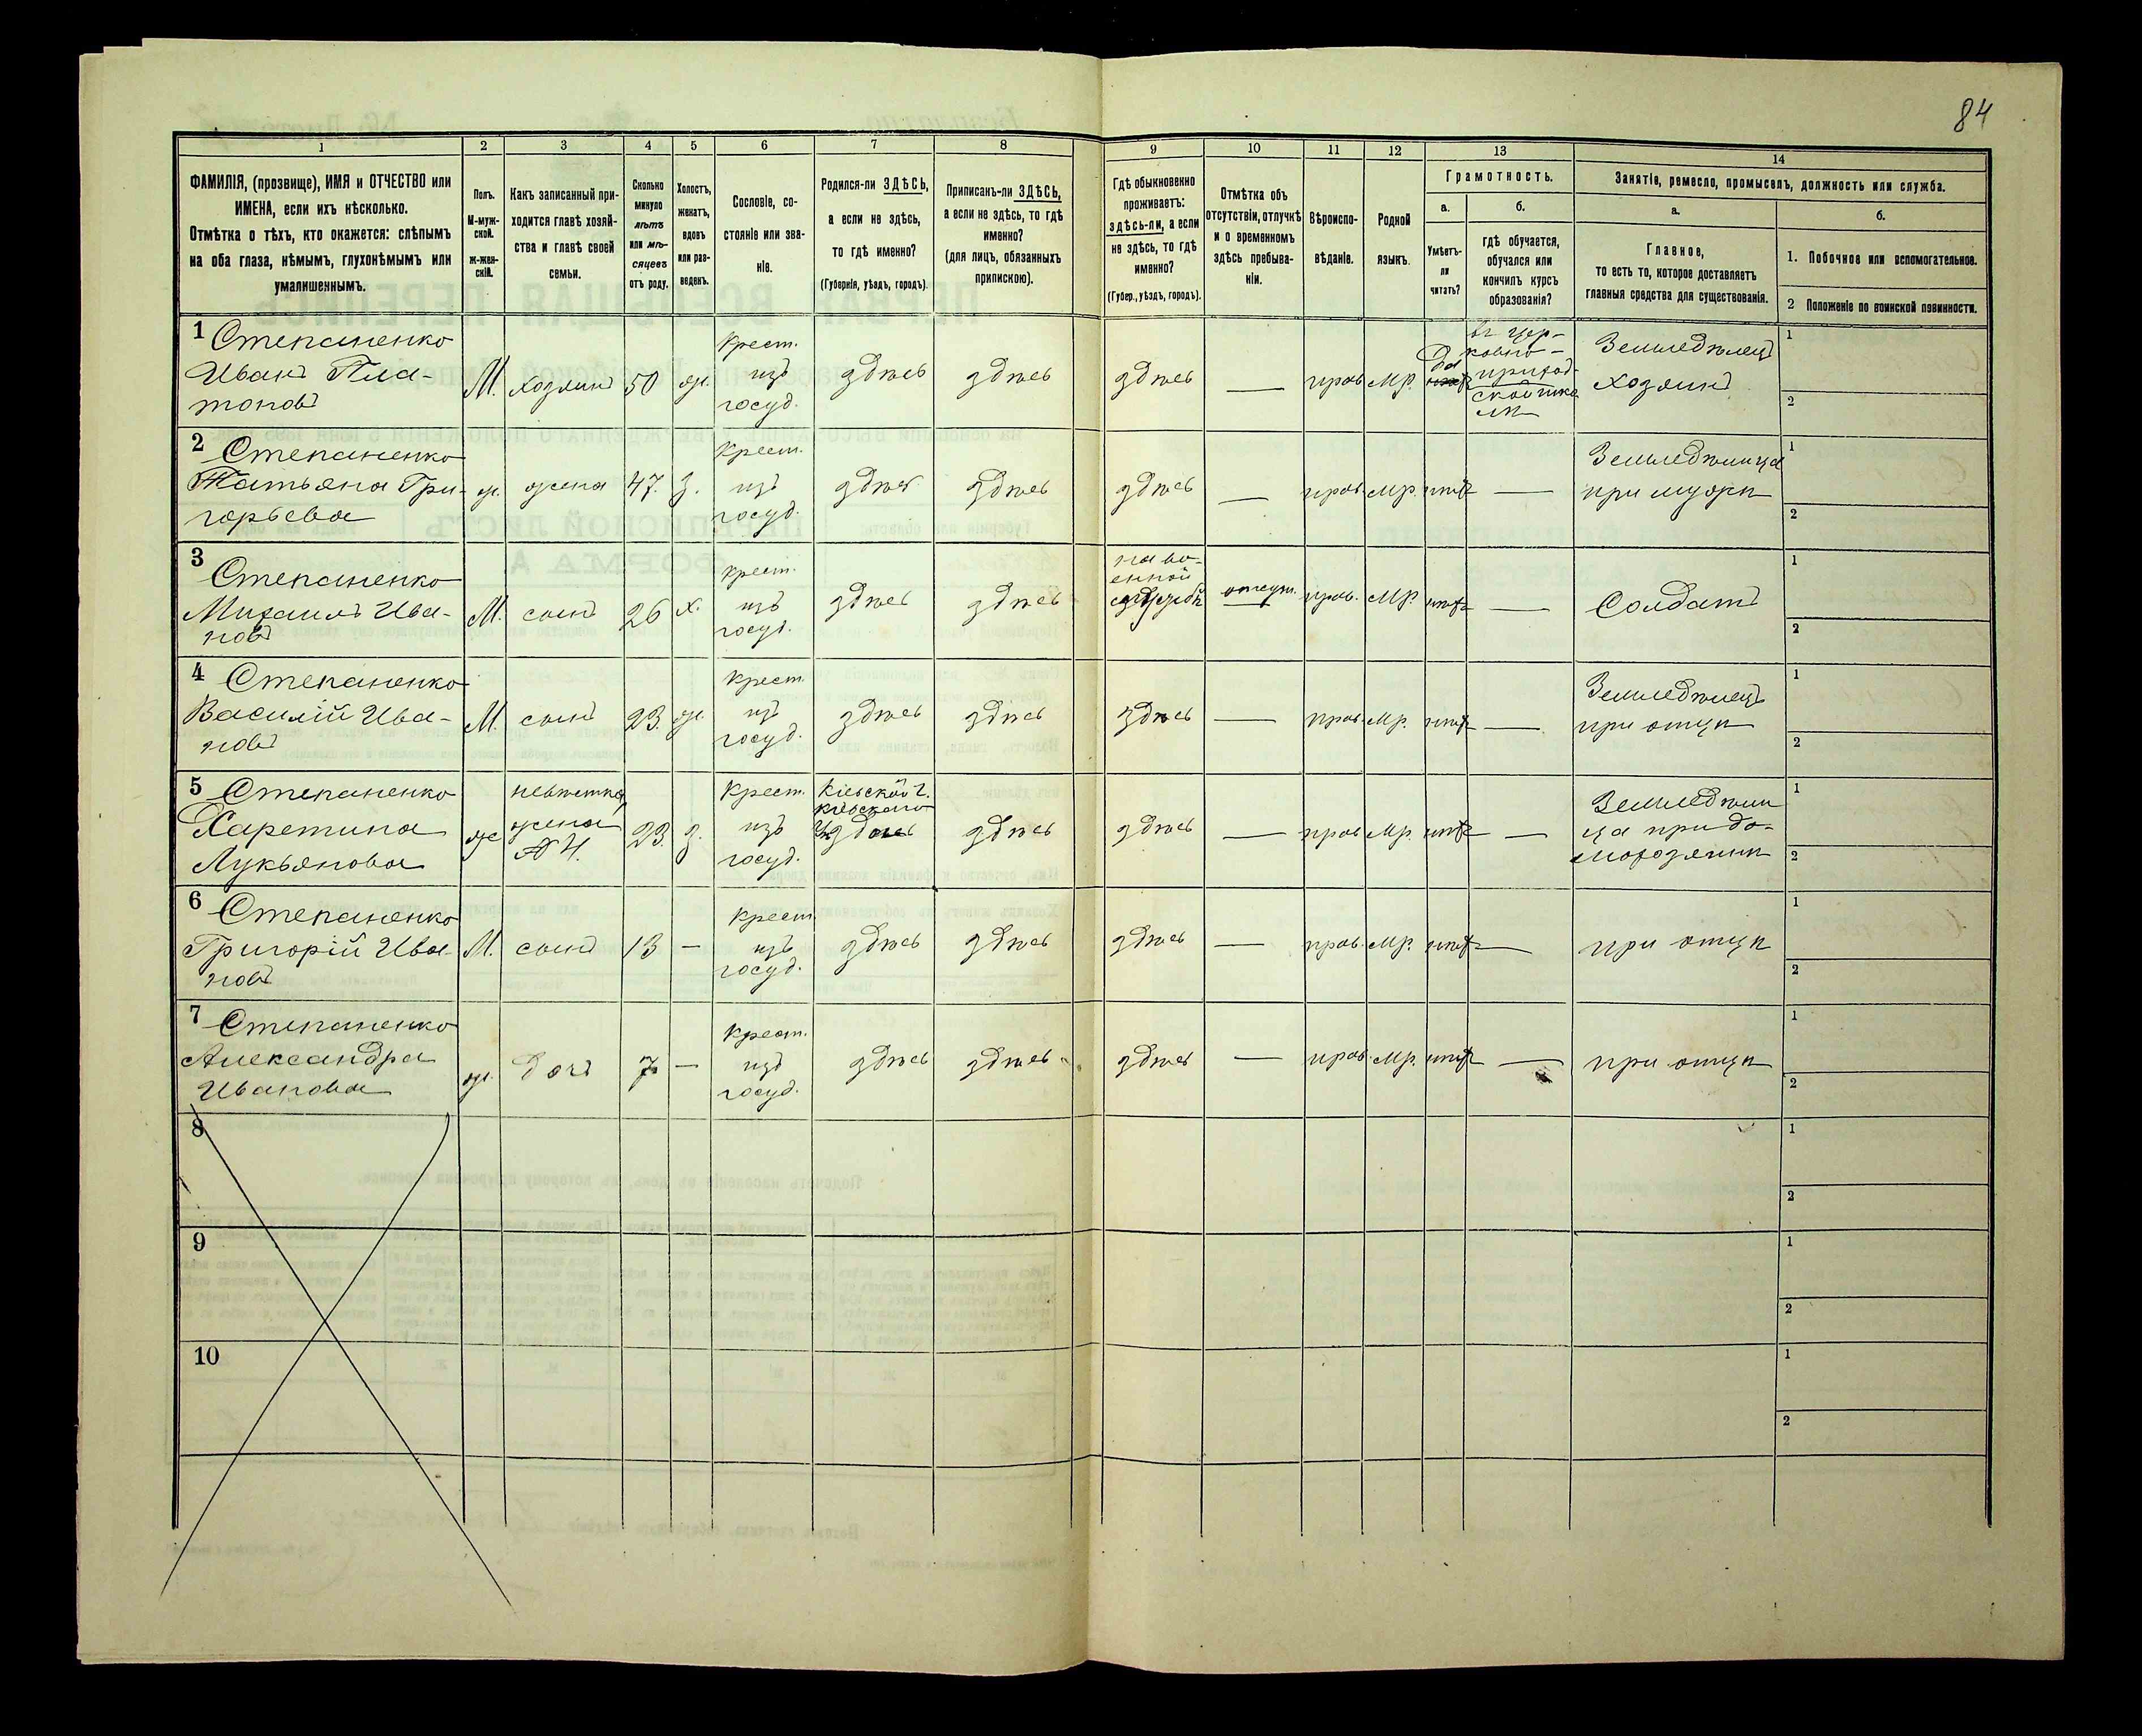 84
1
2
3
4
5
6
7
8
9
10
11
12
13
14
ФАМИЛІЯ, (прозвище), ИМЯ и ОТЧЕСТВО или
ИМЕНА, если ихъ нѣсколько.
Отмѣтка о тѣхъ, кто окажется: слѣпымъ
на оба глаза, нѣмымъ, глухонѣмымъ или
умалишеннымъ.
Полъ.
М-муж-
ской.
ж-жен-
скій.
Какъ записанный при-
ходится главѣ хозяй-
ства и главѣ своей
семьи.
Сколько
минуло
лѣтъ
или мѣ-
сяцевъ
отъ роду.
Холостъ,
женатъ,
вдовъ
или раз-
веденъ.
Сословіе, со-
стояніе или зва-
ніе.
Родился-ли ЗДѢСЬ,
а если не здѣсь,
то гдѣ именно?
(Губернія, уѣздъ, городъ).
Приписанъ-ли ЗДѢСЬ,
а если не здѣсь, то гдѣ
именно?
(для лицъ, обязанныхъ
припискою).
Гдѣ обыкновенно
проживаетъ:
здѣсь-ли, а если
не здѣсь, то гдѣ
именно?
(Губер., уѣздъ, городъ).
Отмѣтка объ
отсутствіи, отлучкѣ
и о временномъ
здѣсь пребыва-
ніи.
Вѣроиспо-
вѣданіе.
Родной
языкъ.
Грамотность.
а.
Умѣетъ-
ли
читать?
б.
гдѣ обучается,
обучался или
кончилъ курсъ
образованія?
Занятіе, ремесло, промыселъ, должность или служба.
а.
Главное,
то есть то, которое доставляетъ
главныя средства для существованія.
б.
1. Побочное или вспомогательное.
2 Положеніе по воинской повинности.
1 Степаненко
Иванъ Пла-
тоновъ
М.
хозяинъ
50
ж.
крест.
изъ
госуд.
здѣсь
здѣсь
здѣсь
—
прав.
мр.
да
въ цер-
ковно-
приход-
ской шко
лѣ
Земледѣлецъ
хозяинъ
1
2
2 Степаненко
Татьяна Гри-
горьева
ж.
жена
47.
з.
крест.
изъ
госуд.
здѣсь
здѣсь
здѣсь
—
прав.
мр.
нѣтъ
—
Земледѣлица
при мужѣ
1
2
3
Степаненко
Михаилъ Ива-
новъ
М.
сынъ
26
х.
крест.
изъ
госуд.
здѣсь
здѣсь
на во-
енной
службѣ
отсут.
прав.
мр.
нѣтъ
—
Солдатъ
1
2
4 Степаненко
Василій Ива-
новъ
М.
сынъ
23.
ж.
крест.
изъ
госуд.
здѣсь
здѣсь
здѣсь
—
прав.
мр.
нѣтъ
—
Земледѣлецъ
при отцѣ
1
2
5 Степаненко
Харетина
Лукьянова
ж
невѣстка,
жена
№ 4.
23.
з.
крест.
изъ
госуд.
Кіевской г.
кіевскаго
здѣсь
здѣсь
—
прав.
мр.
нѣтъ
—
Земледѣли
ца при до-
мохозяинѣ
1
2
6 Степаненко
Григорій Ива-
новъ
М.
сынъ
13
—
крест.
изъ
госуд.
здѣсь
здѣсь
здѣсь
—
прав.
мр.
нѣтъ
—
при отцѣ
1
2
7 Степаненко
Александра
Иванова
ж.
дочь
7
—
крест.
изъ
госуд.
здѣсь
здѣсь
здѣсь
—
прав.
мр.
нѣтъ
—
при отцѣ
1
2
8
1
2
9
1
2
10
1
2